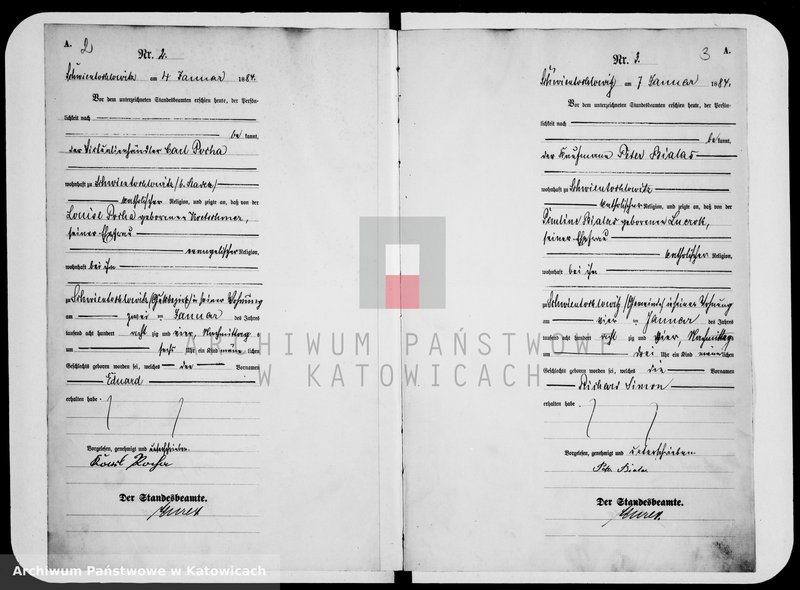 A. 2
Nr. 2.
Schwientochlowitz am 4 Januar 1884.
Vor dem unterzeichneten Standesbeamten erschien heute, der Persön-
lichkeit nach
be kannt,
der Victualienhändler Carl
wohnhaft zu Schwientochlowitz
katholischer Religion, und zeigte an, daß von der
Louise geborenen
seiner Ehefrau
evangelischer Religion,
wohnhaft bei ihm
zu Schwientochlowitz in seiner Wohnung
am zwei ten Januar des Jahres
tausend acht hundert acht zig und vier, Nachmittag s
um sechs Uhr ein Kind männ lichen
Geschlechts geboren worden sei, welches den Vornamen
Eduard
erhalten habe.
Vorgelesen, genehmigt und unterschrieben
Der Standesbeamte.
3 A.
Nr. 3.
Schwientochlowitz am 7 Januar 1884.
Vor dem unterzeichneten Standesbeamten erschien heute, der Persön-
lichkeit nach
be kannt,
der Kaufmann Peter Bialas
wohnhaft zu Schwientochlowitz
katholischer Religion, und zeigte an, daß von der
Pauline Bialas geborenen
seiner Ehefrau
katholischer Religion,
wohnhaft bei ihm
zu Schwientochlowitz in seiner Wohnung
am vier ten Januar des Jahres
tausend acht hundert acht zig und vier, Nachmittags
um drei Uhr ein Kind männlichen
Geschlechts geboren worden sei, welches die Vornamen
Richard Simon
erhalten habe.
Vorgelesen, genehmigt und unterschrieben
Peter Bialas
Der Standesbeamte.
ARCHIWUM PAŃSTWOWE
W KATOWICACH
Archiwum Państwowe w Katowicach